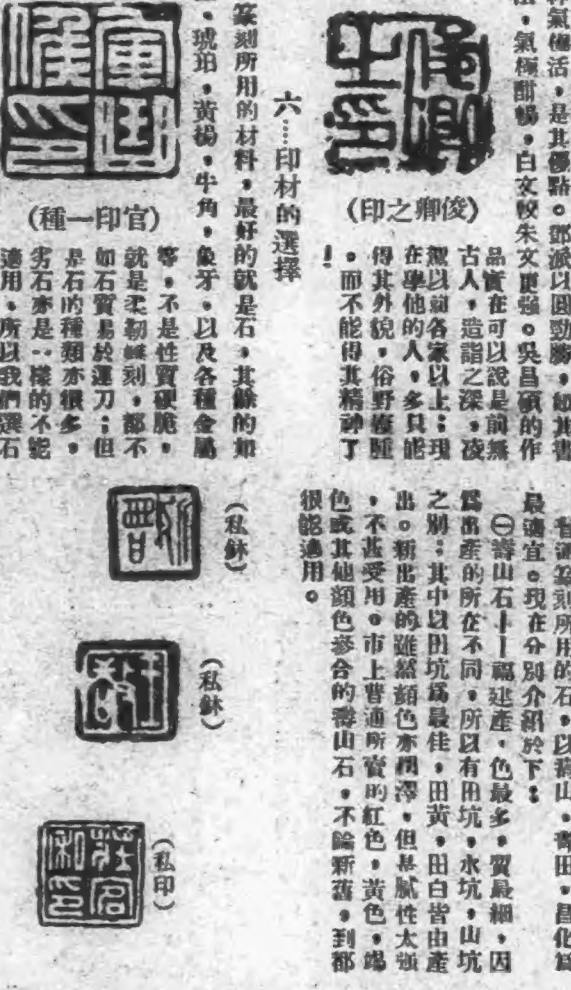 氣極活，是其優點。鄧派以圓勁勝，
氣極酣暢，白文較朱文更强。吳昌碩的作
品實在可以說是前無
古人，造詣之深，凌
駕以前各家以上；現
在學他的人，多只能
得其外貌，俗野
。而不能得其精神了
！
俊卿之印
（俊卿之印）
六……印材的選擇
篆刻所用的材料，最好的就是石，其餘的如
琥珀，黃楊，牛角，象牙，以及各種金屬
等，不是性質硬脆，
就是柔韌難刻，都不
如石質易於運刀；但
是石的種類亦很多，
劣石亦是一樣的不能
適用，所以我們選石
（官印一種）
普通篆刻所用的石，以壽山，青田，昌化爲
最適宜。現在分別介紹於下：
㊀壽山石——福建產，色最多，質最細，因
爲出產的所在不同，所以有田坑，水坑，山坑
之別；其中以田坑爲最佳，田黃，田白皆由產
出。新出產的雖然顏色亦潤澤，但是膩性太强
，不甚受用。市上普通所賣的紅色，黃色，
色或其他顏色摻合的壽山石，不論新舊，到都
很能適用。
（私鉨）
（私鉨）
（私印）